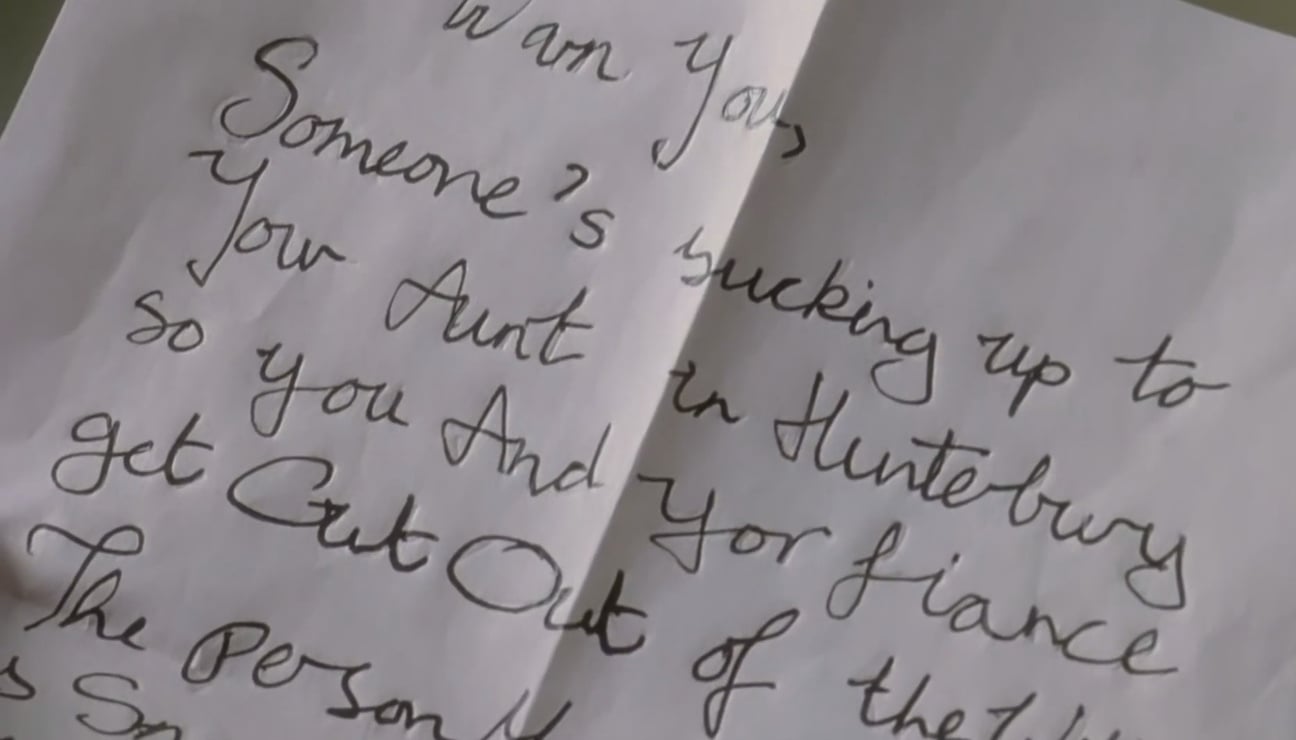 Warn You,
Someone's sucking up to
Your Aunt in Hunterbury
so you And Yor fiance
get Cut Out of the
The Person